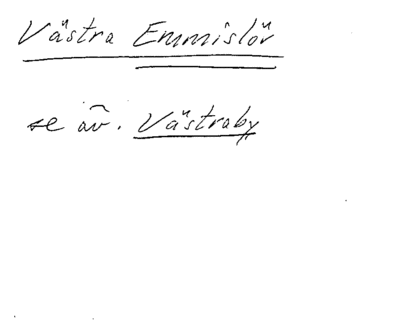 Västra Emmislöv
se äv. Västraby